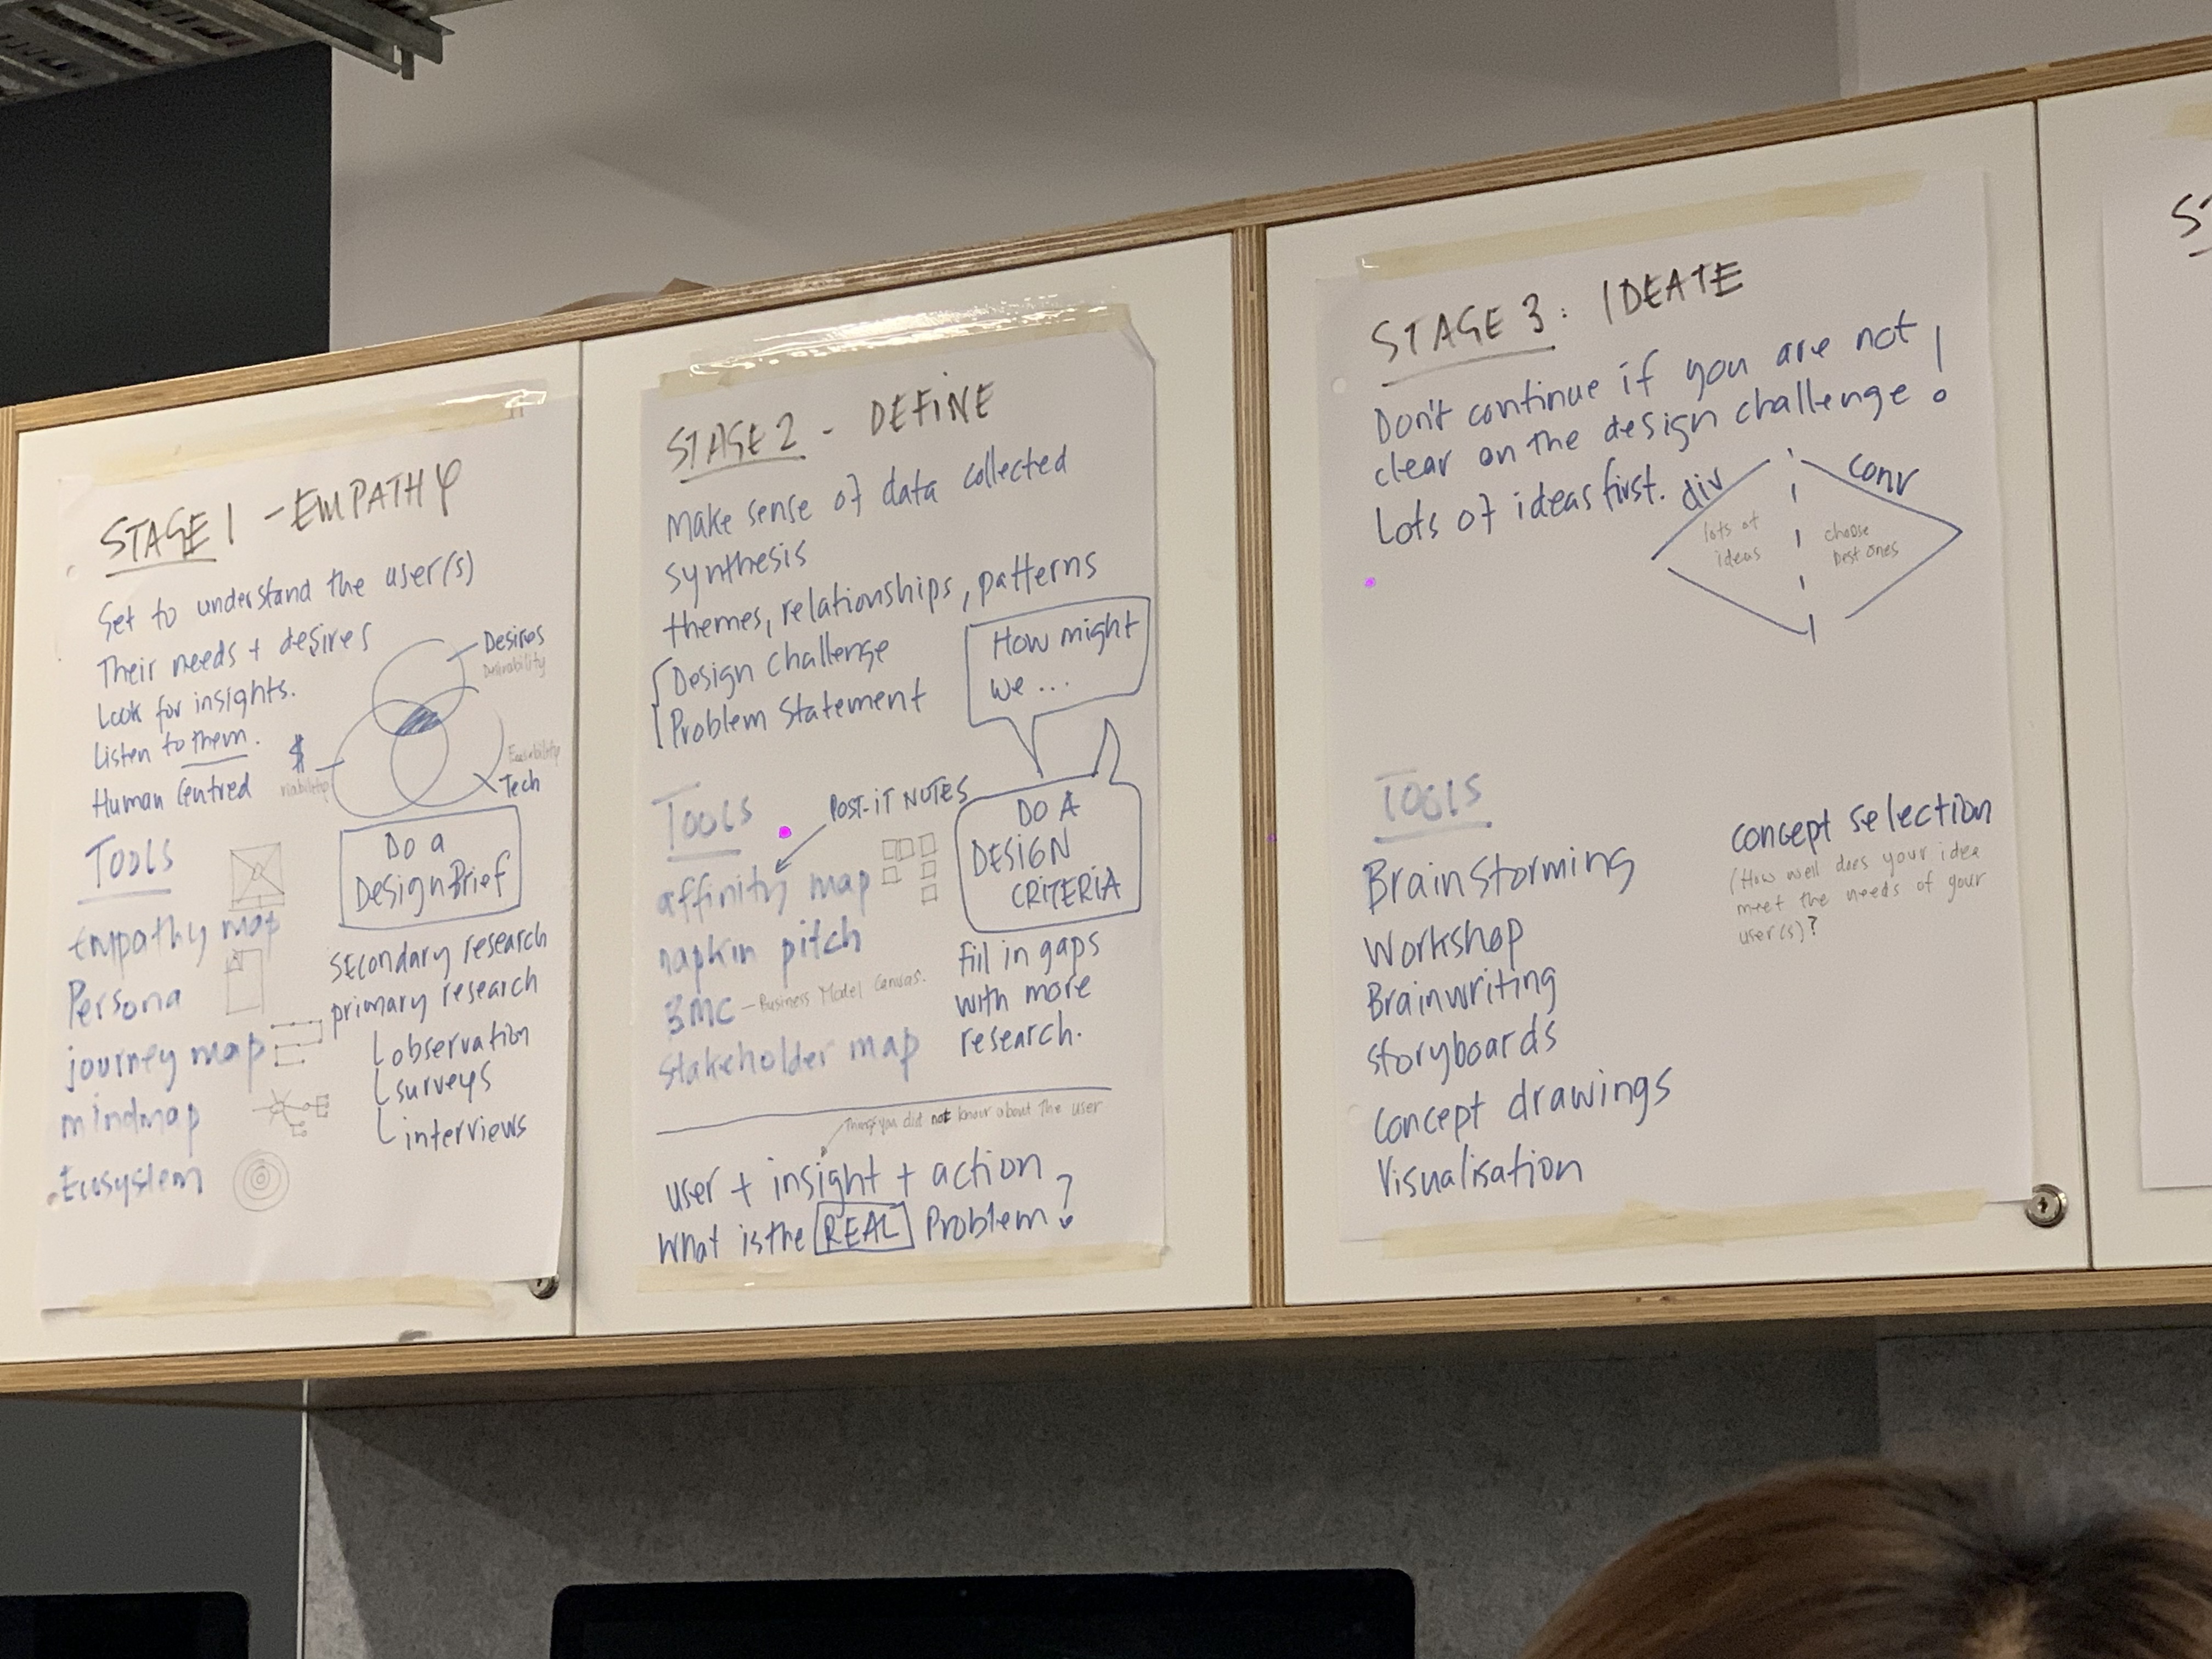 STAGE 1 - EMPATHY
Get to understand the user(s)
Their needs + desires
Look for insights.
Listen to them.
Human Centred
Desires
Desirability
$
viability
Feasibility
Tech
TOOLS
Empathy map
Persona
journey map
mindmap
Ecosystem
Do a
Design Brief
Secondary research
primary research
observation
surveys
interviews
STAGE 2 - DEFINE
Make sense of data collected
synthesis
themes, relationships, patterns
Design Challenge
Problem Statement
How might
we ...
TOOLS
POST-IT NOTES
affinity map
napkin pitch
BMC - Business Model Canvas.
Stakeholder map
DO A
DESIGN
CRITERIA
Fill in gaps
with more
research.
Things you did not know about the user
user + insight + action
What is the REAL Problem?
STAGE 3: IDEATE
Don't continue if you are not
clear on the design challenge!
Lots of ideas first.
div
conv
lots of
ideas
choose
best ones
TOOLS
Brainstorming
Workshop
Brainwriting
Storyboards
Concept drawings
Visualisation
concept selection
(How well does your idea
meet the needs of your
user(s)?